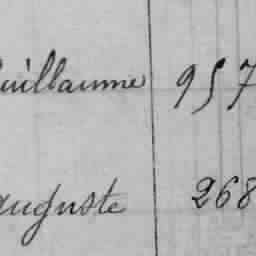 Guillaume 957
auguste 268